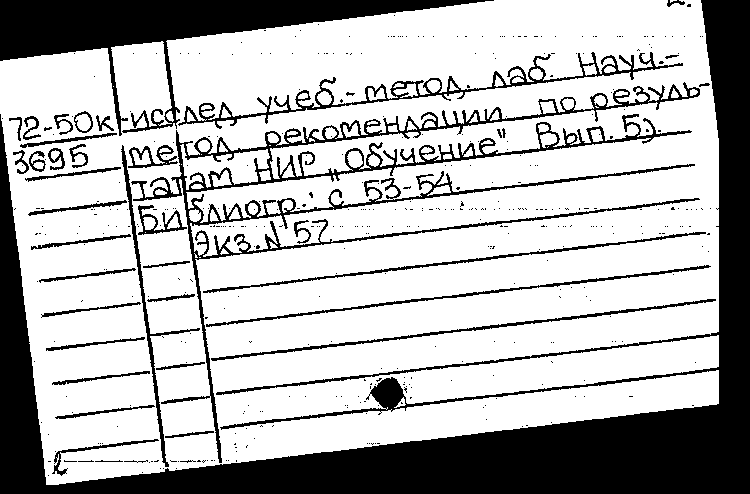 2.
72-50к -исслед. учеб.-метод. лаб. Науч.-
3695 метод. рекомендации по резуль-
татам НИР „Обучение" Вып. 5).
Библиогр.: с 53-54.
Экз. N 57